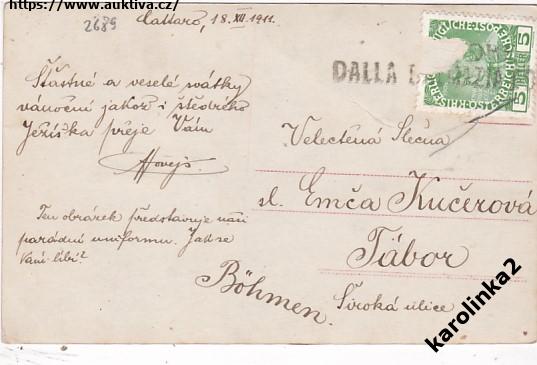 https://www.auktiva.cz/
2689
Cattaro, 18. XII. 1911.
Šťastné a veselé svátky
vánoční jakož i štědrého
Ježíška přeje Vám
Hovejs.
Ten obrázek představuje naši
parádní uniformu. Jak se
Vám líbí?
DALLA
5 HELLER 5
Velectěná Slečna
sl. Emča Kučerová
Tábor
Široká ulice
Böhmen.
karolinka2